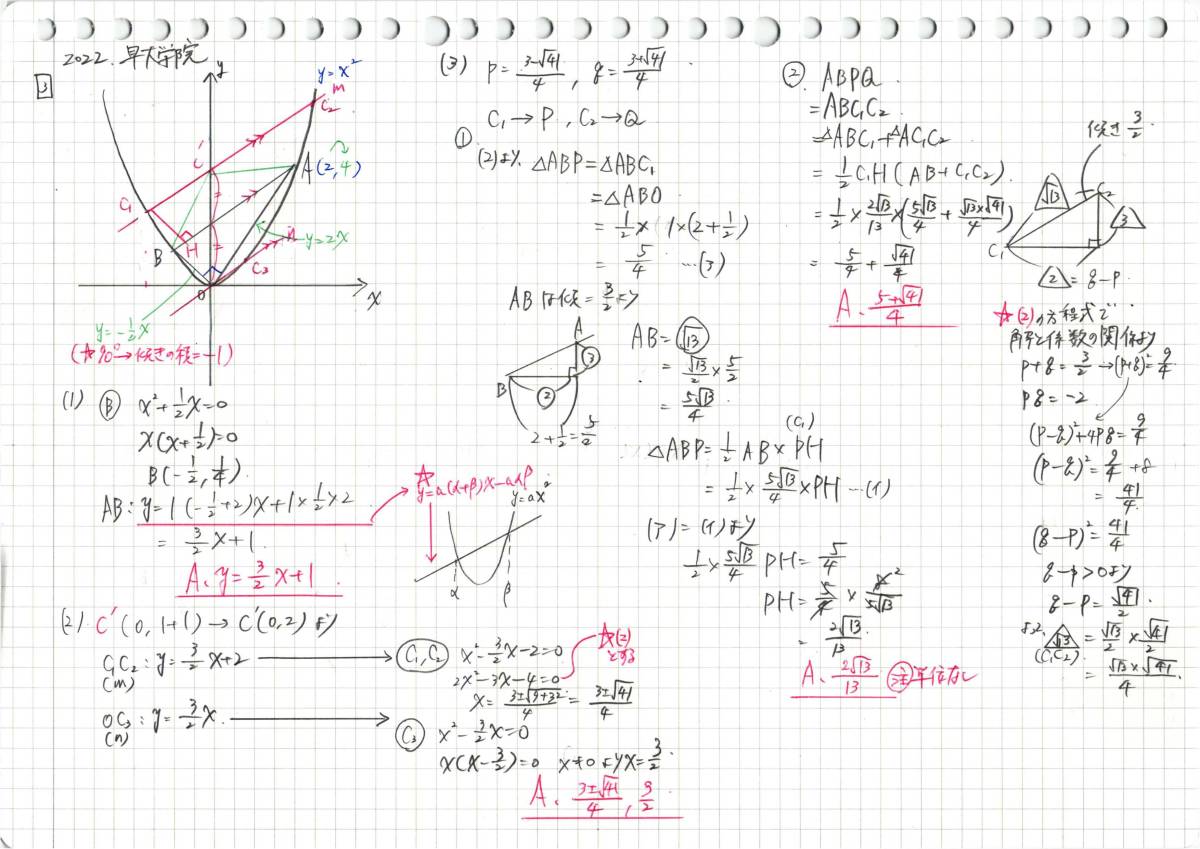 2022. 早大学院
3
y
y=x²
m
C₂
C'
A(2,4)
C₁
H
B
y=2x
n
C₃
O
x
y=-1/2x
(☆90°→傾きの積=-1)
(1) Ⓑ x²+1/2x=0
x(x+1/2)=0
B(-1/2, 1/4).
AB: y=1(-1/2+2)x+1×1/2×2
= 3/2x+1.
A. y=3/2x+1.
☆
y=a(α+β)x-aαβ
y=ax²
α
β
(2) C'(0,1+1)→C'(0,2)より
C₁C₂: y=3/2x+2
(m)
OC₃: y=3/2x.
(n)
C₁,C₂ x²-3/2x-2=0
2x²-3x-4=0
x=3±√9+32/4=3±√41/4
☆(2)
とする
C₃ x²-3/2x=0
x(x-3/2)=0 x≠0よりx=3/2.
A. 3±√41/4, 3/2
(3) p=3-√41/4, q=3+√41/4.
C₁→P, C₂→Q
①
(2)より. △ABP=△ABC₁
=△ABO
=1/2×1×(2+1/2)
=5/4 …(ア)
ABは傾=3/2より
A
B
③
②
2+1/2=5/2
AB=√13
=√13/2×5/2
=5√13/4
(C₁)
△ABP=1/2AB×PH
=1/2×5√13/4×PH…(イ)
(ア)=(イ)より
1/2×5√13/4PH=5/4
PH=5/4×8²/5√13
=2√13/13.
A. 2√13/13 注単位なし
② ABPQ.
=ABC₁C₂
=△ABC₁+△AC₁C₂
=1/2C₁H(AB+C₁C₂).
=1/2×2√13/13×(5√13/4+√13×√41/4)
=5/4+√41/4
A. 5+√41/4
傾き3/2.
√13
C₂
3
C₁
2=q-p.
☆(2)の方程式で
解と係数の関係より
p+q=3/2→(p+q)²=9/4
pq=-2
(p-q)²+4pq=9/4
(p-q)²=9/4+8
=41/4
(q-p)²=41/4
q-p>0より
q-p=√41/2.
よって √13=√13/2×√41/2
(C₁C₂)
=√13×√41/4.